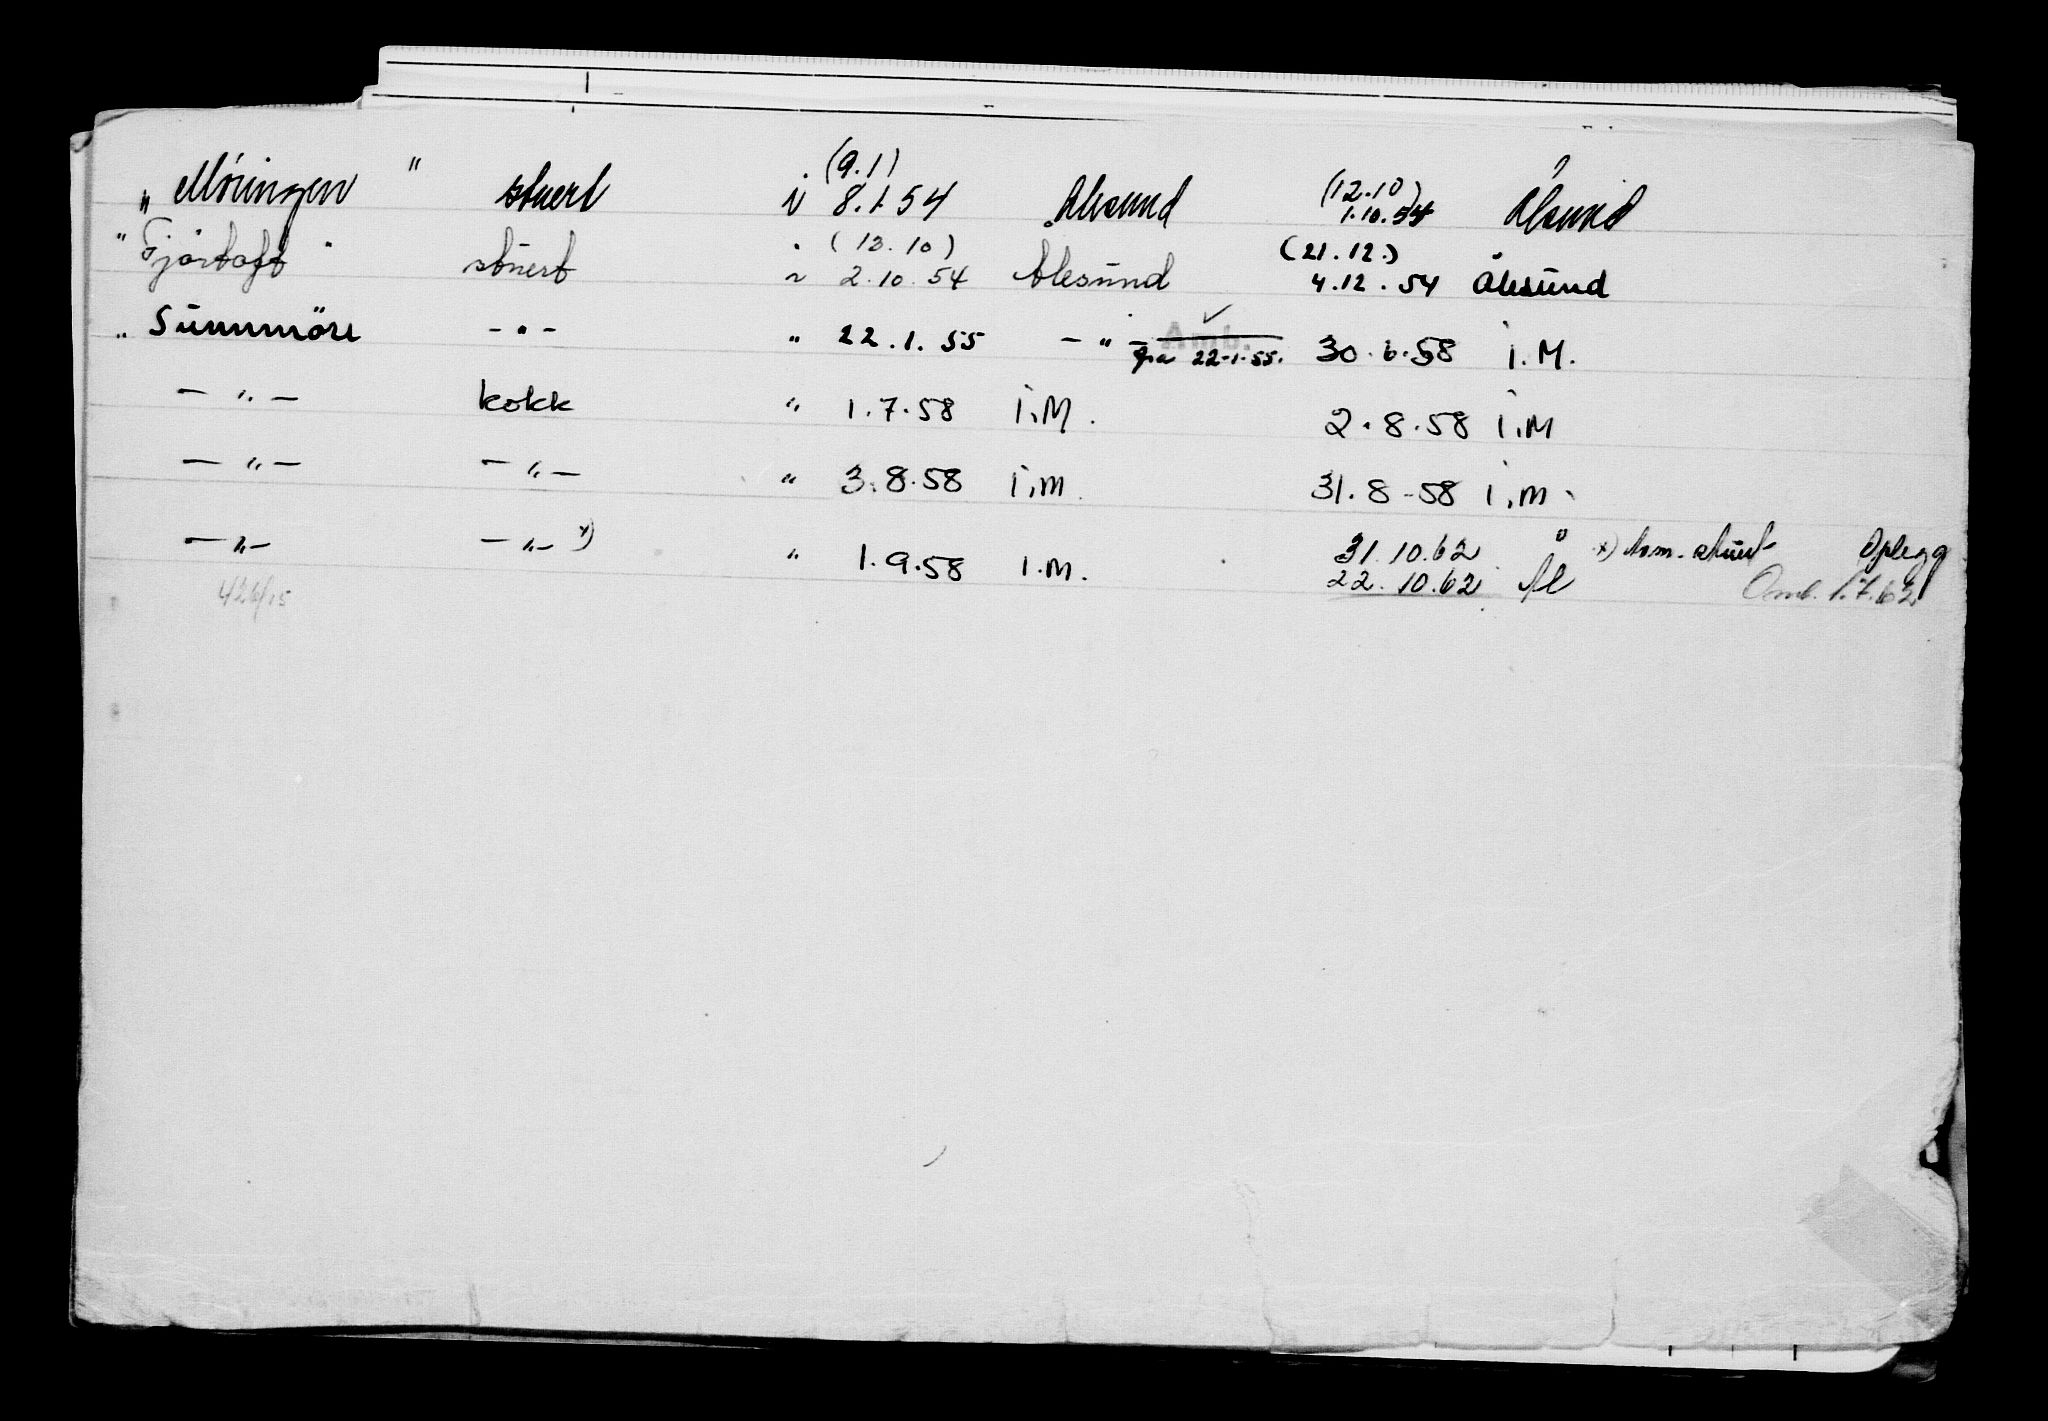 „ Möringen " stuert i (9.1) 8.1.54 Ålesund (12.10) 1.10.54 Ålesund
" Fjörtoft " stuert " (13.10) 2.10.54 Ålesund (21.12.) 4.12.54 Ålesund
„ Sunnmöre - " - " 22.1.55 - " - Amb. fra 22-1-55. 30.6.58 i.M.
- " - kokk " 1.7.58 i.M. 2.8.58 i.M
- " - - " - " 3.8.58 i.m. 31.8-58 i.m.
- " - - " - x) " 1.9.58 i.M. 31.10.62 " x) stuert Oplegg
22.10.62 Ål Omb. 1.7.62
426/15